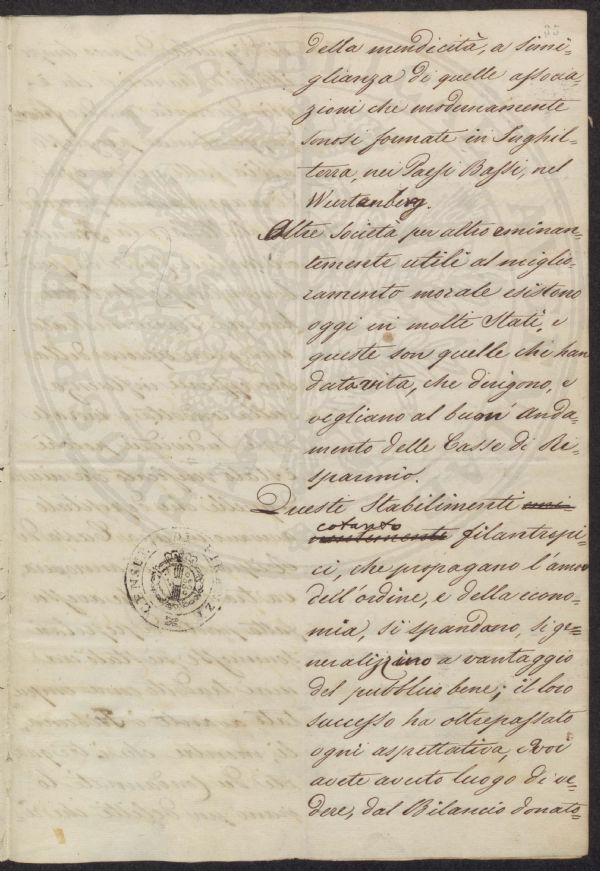 35
della mendicità, a simi=
glianza di quelle associa=
zioni che modernamente
sonosi formate in Inghil=
terra, nei Paesi Bassi, nel
Wurtenberg.
Altre Società per altro eminan=
temente utili al miglio=
ramento morale esistono
oggi in molti Stati, e
queste son quelle che han
dato vita, che dirigono, e
vegliano al buon anda=
mento delle Casse di Ri=
sparmio.
Queste Stabilimenti
cotanto
filantropi=
ci, che propagano l'amor
dell'ordine, e della econo=
mia, si spandano, si ge=
neralizzino a vantaggio
del pubblico bene; il loro
successo ha oltrepassato
ogni aspettativa, e Voi
avete avuto luogo di ve=
dere, dal Bilancio donato=